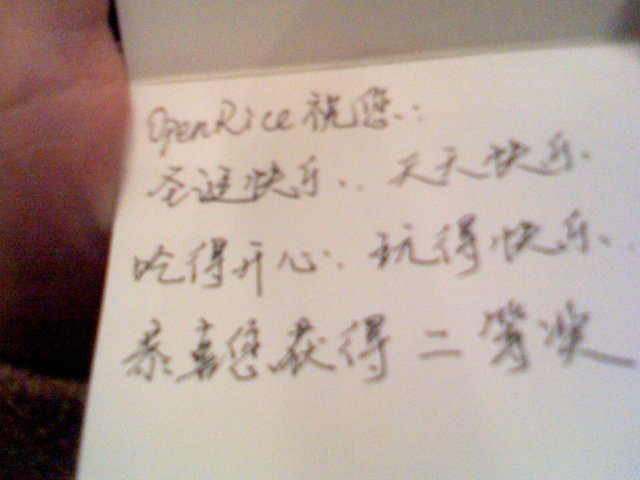 OpenRice 祝您:
圣诞快乐.. 天天快乐.
吃得开心.. 玩得快乐.
恭喜您获得二等奖